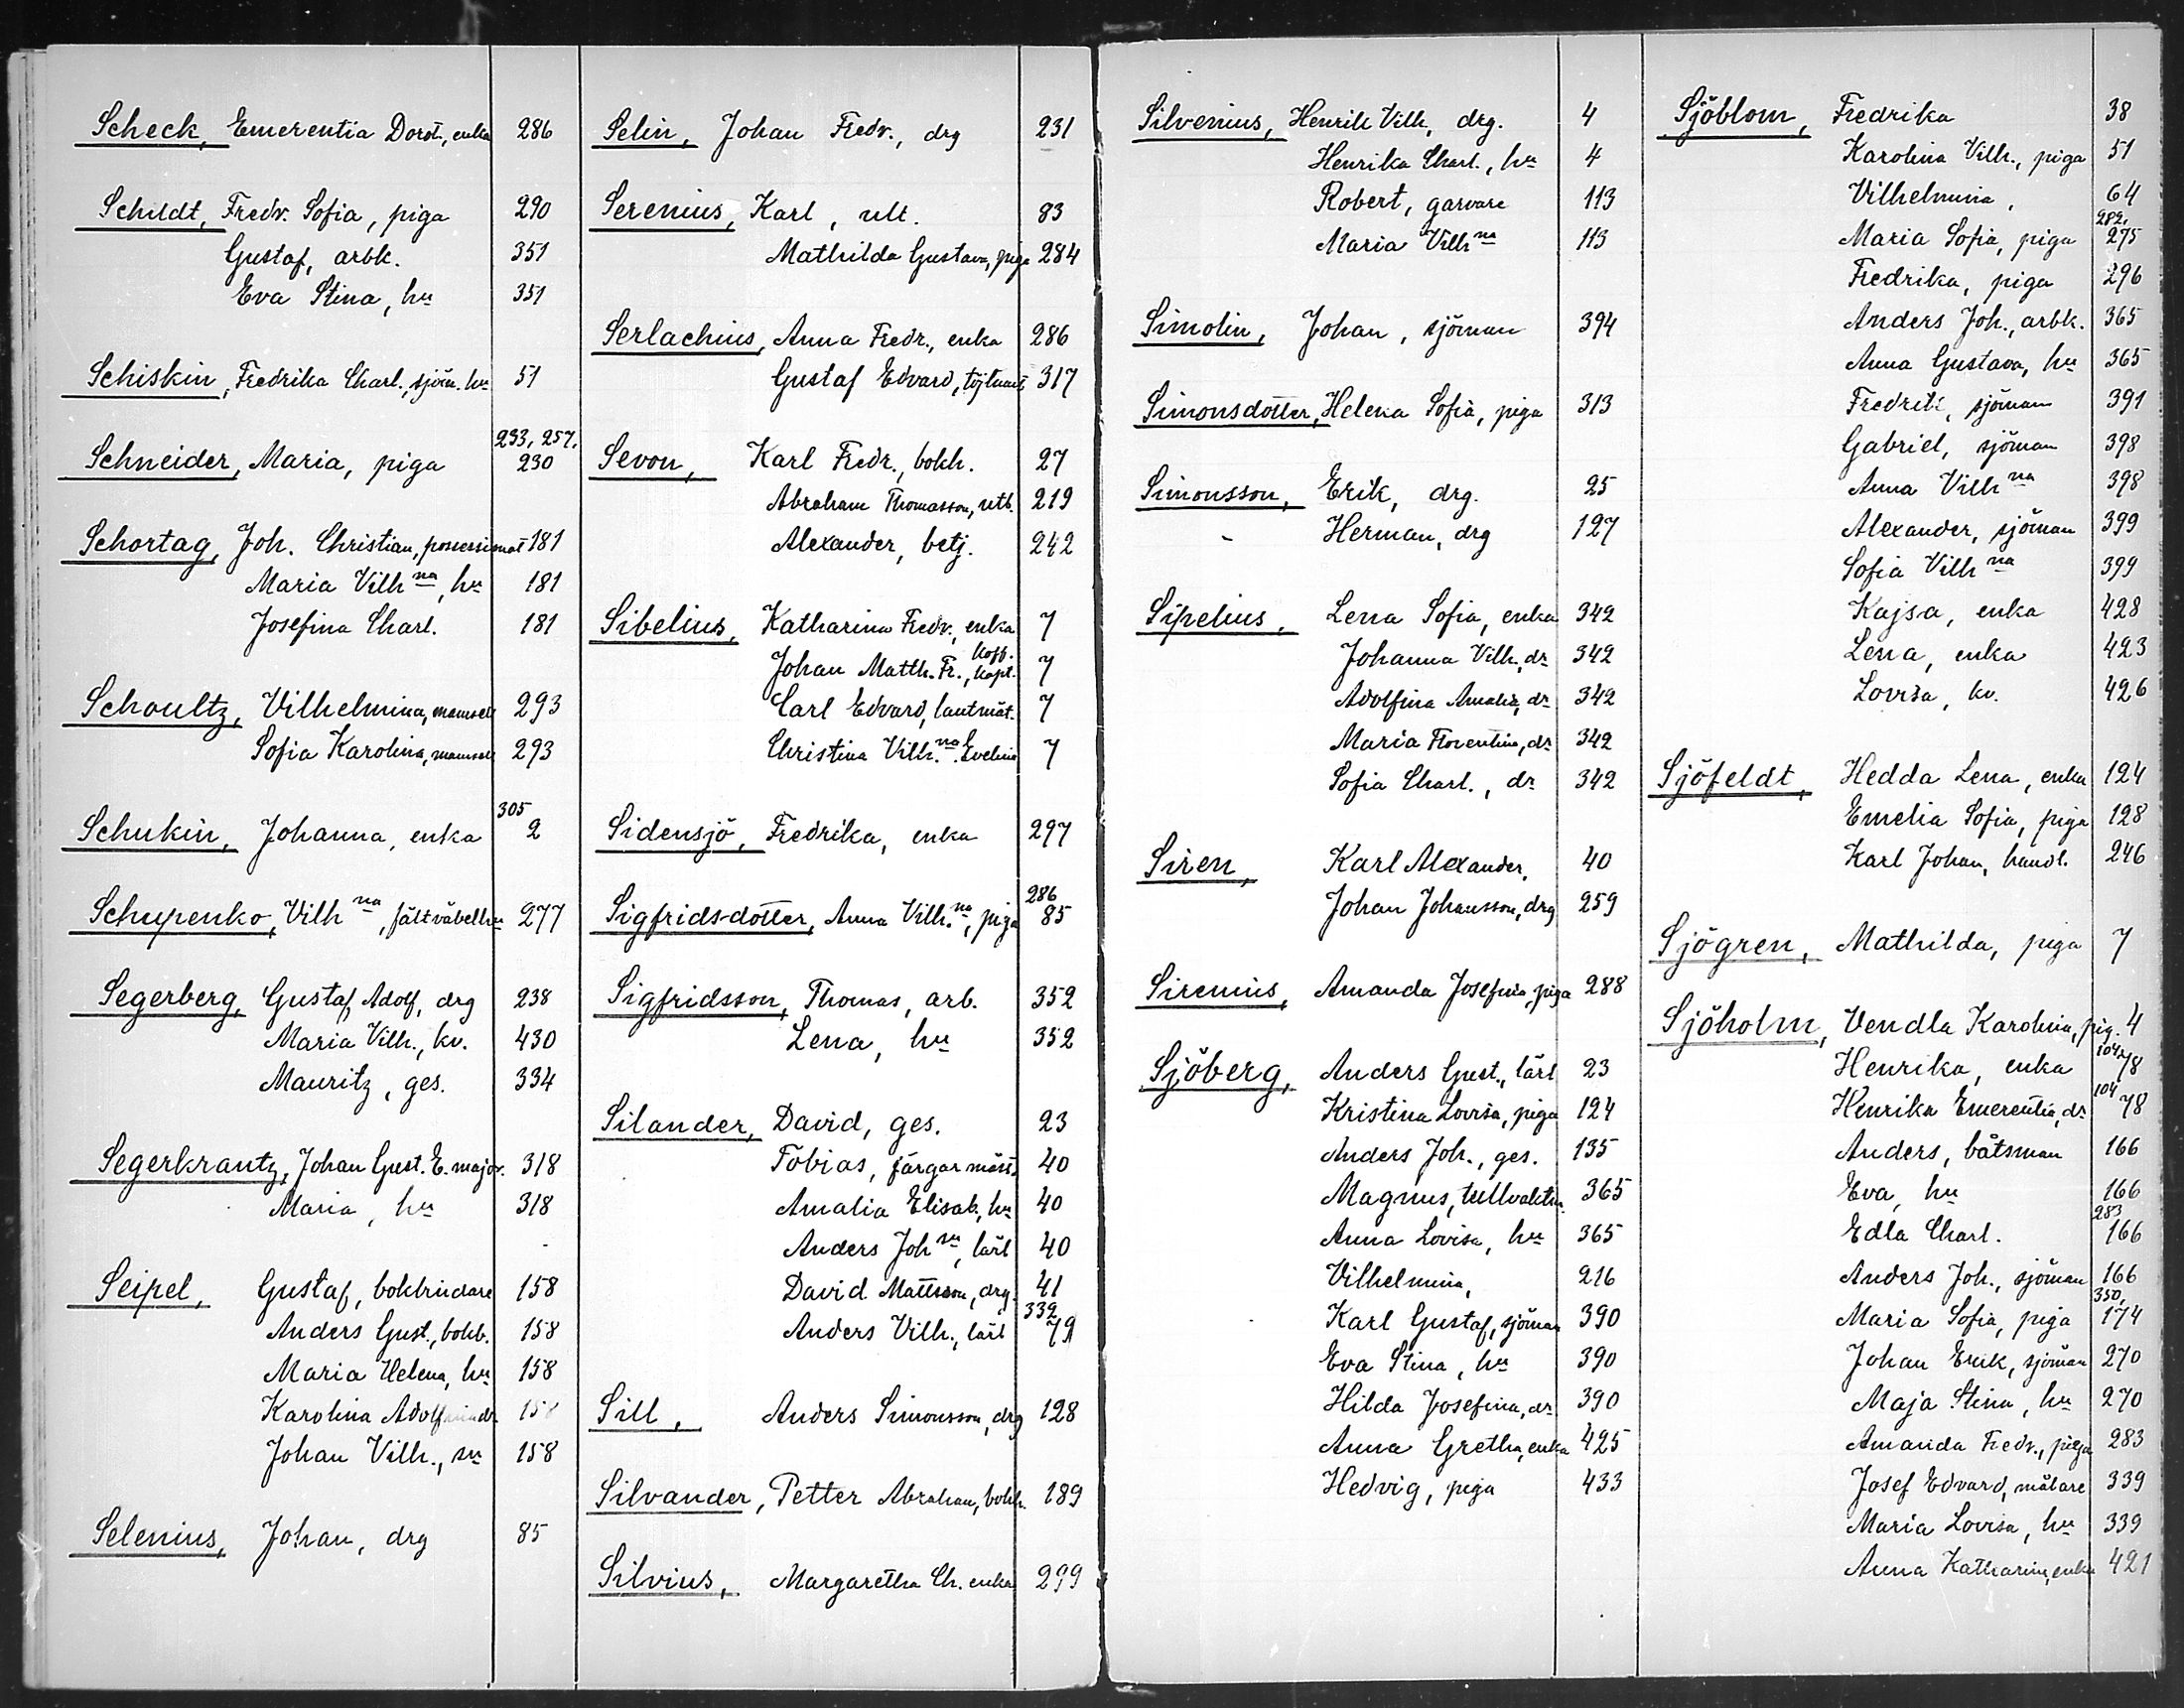 Scheck, Emerentia Dorot., enka 286
Schildt, Fredr. Sofia, piga 290
Gustaf, arbk. 351
Eva Stina, hu 351
Schiskin, Fredrika Charl., sjöm. hu 51
233, 257,
Schneider, Maria, piga 230
Schortag, Joh. Christian, possessionat 181
Maria Vilhna, hu 181
Josefina Charl. 181
Schoultz, Vilhelmina, mamsell 293
Sofia Karolina, mamsell 293
305
Schukin, Johanna, enka 2
Schupenko, Vilhna, fältväbelhu 277
Segerberg, Gustaf Adolf, drg 238
Maria Vilh., kv. 430
Mauritz, ges. 334
Segerkrantz, Johan Gust. E. major. 318
Maria, hu 318
Seipel, Gustaf, bokbindare 158
Anders Gust., bokb. 158
Maria Helena, hu 158
Karolina Adolfina dr 158
Johan Vilh., sn 158
Selenius, Johan, drg 85
Selin, Johan Fredr., drg 231
Serenius, Karl, utl. 83
Mathilda Gustava, piga 284
Serlachius, Anna Fredr., enka 286
Gustaf Edvard, töjtnant 317
Sevon, Karl Fredr., bokh. 27
Abraham Thomasson, utb. 219
Alexander, betj. 242
Sibelius, Katharina Fredr., enka 7
koff.
Johan Matth. Fr., kapt. 7
Carl Edvard, lantmät. 7
Christina Vilh.na Evelina 7
Sidensjö, Fredrika, enka 297
286
Sigfrids-dotter, Anna Vilh.na, piga 85
Sigfridsson, Thomas, arb. 352
Lena, hu 352
Silander, David, ges. 23
Tobias, färgarmäst. 40
Amalia Elisab., hu 40
Anders Joh sn, lärl 40
David Mattsson, drg. 41
332
Anders Vilh., lärl 79
Sill, Anders Simonsson, drg 128
Silvander, Petter Abraham, bokh. 189
Silvius, Margaretha Ch. enka 299
Silvenius, Henrik Vilh., drg. 4
Henrika Charl., hu 4
Robert, garvare 113
Maria Vilhna 113
Simolin, Johan, sjöman 394
Simonsdotter, Helena Sofia, piga 313
Simonsson, Erik, drg. 25
- Herman, drg 127
Sipelius, Lena Sofia, enka 342
Johanna Vilh., dr 342
Adolfina Amalia, dr 342
Maria Florentina, dr 342
Sofia Charl., dr 342
Siren, Karl Alexander, 40
Johan Johansson, drg 259
Sirenius, Amanda Josefina, piga 288
Sjöberg, Anders Gust., lärl 23
Kristina Lovisa, piga 124
Anders Joh., ges. 135
Magnus, tullvaktm. 365
Anna Lovisa, hu 365
Vilhelmina, 216
Karl Gustaf, sjöman 390
Eva Stina, hu 390
Hilda Josefina, dr 390
Anna Gretha, enka 425
Hedvig, piga 433
Sjöblom, Fredrika 38
Karolina Vilh., piga 51
Vilhelmina, 64
282,
Maria Sofia, piga 275
Fredrika, piga 296
Anders Joh., arbk. 365
Anna Gustava, hu 365
Fredrik, sjöman 391
Gabriel, sjöman 398
Anna Vilhna 398
Alexander, sjöman 399
Sofia Vilhna 399
Kajsa, enka 428
Lena, enka 423
Lovisa, kv. 426
Sjöfeldt, Hedda Lena, enka 124
Emelia Sofia, piga 128
Karl Johan, handl. 246
Sjögren, Mathilda, piga 7
Sjöholm, Vendla Karolina, pig. 4
104
Henrika, enka 78
104
Henrika Emerentia, dr 78
Anders, båtsman 166
Eva, hu 166
283
Edla Charl. 166
Anders Joh., sjöman 166
350,
Maria Sofia, piga 174
Johan Erik, sjöman 270
Maja Stina, hu 270
Amanda Fredr., piga 283
Josef Edvard, målare 339
Maria Lovisa, hu 339
Anna Katharina, enka 421